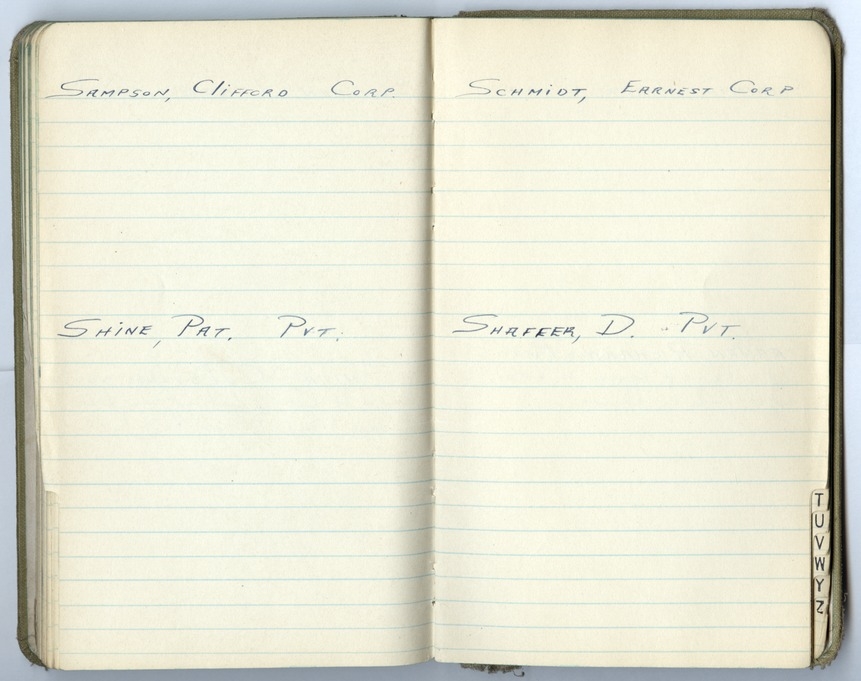 Sampson, Clifford Corp.
Shine, Pat. Pvt.
Schmidt, Earnest Corp
Shaffer, D. Pvt.
T
U
V
W
Y
Z